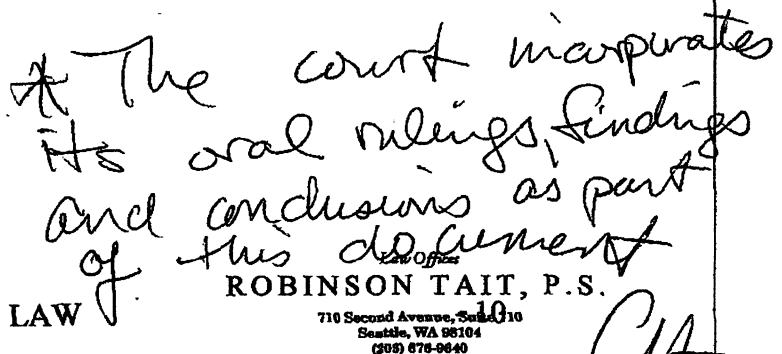 * The court incorporates
its oral rulings, findings
and conclusions as part
of this document
Law Offices
ROBINSON TAIT, P.S.
LAW
710 Second Avenue, Suite 710
10
Seattle, WA 98104
(205) 676-9640